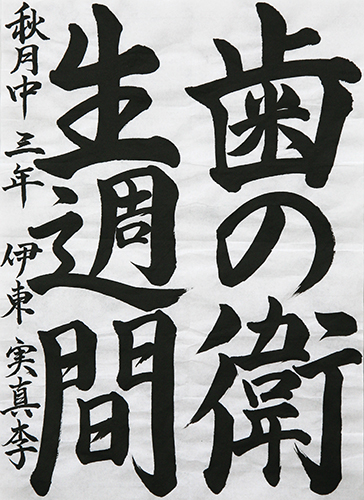 歯の衛
生週間
秋月中 三年 伊東 実真李